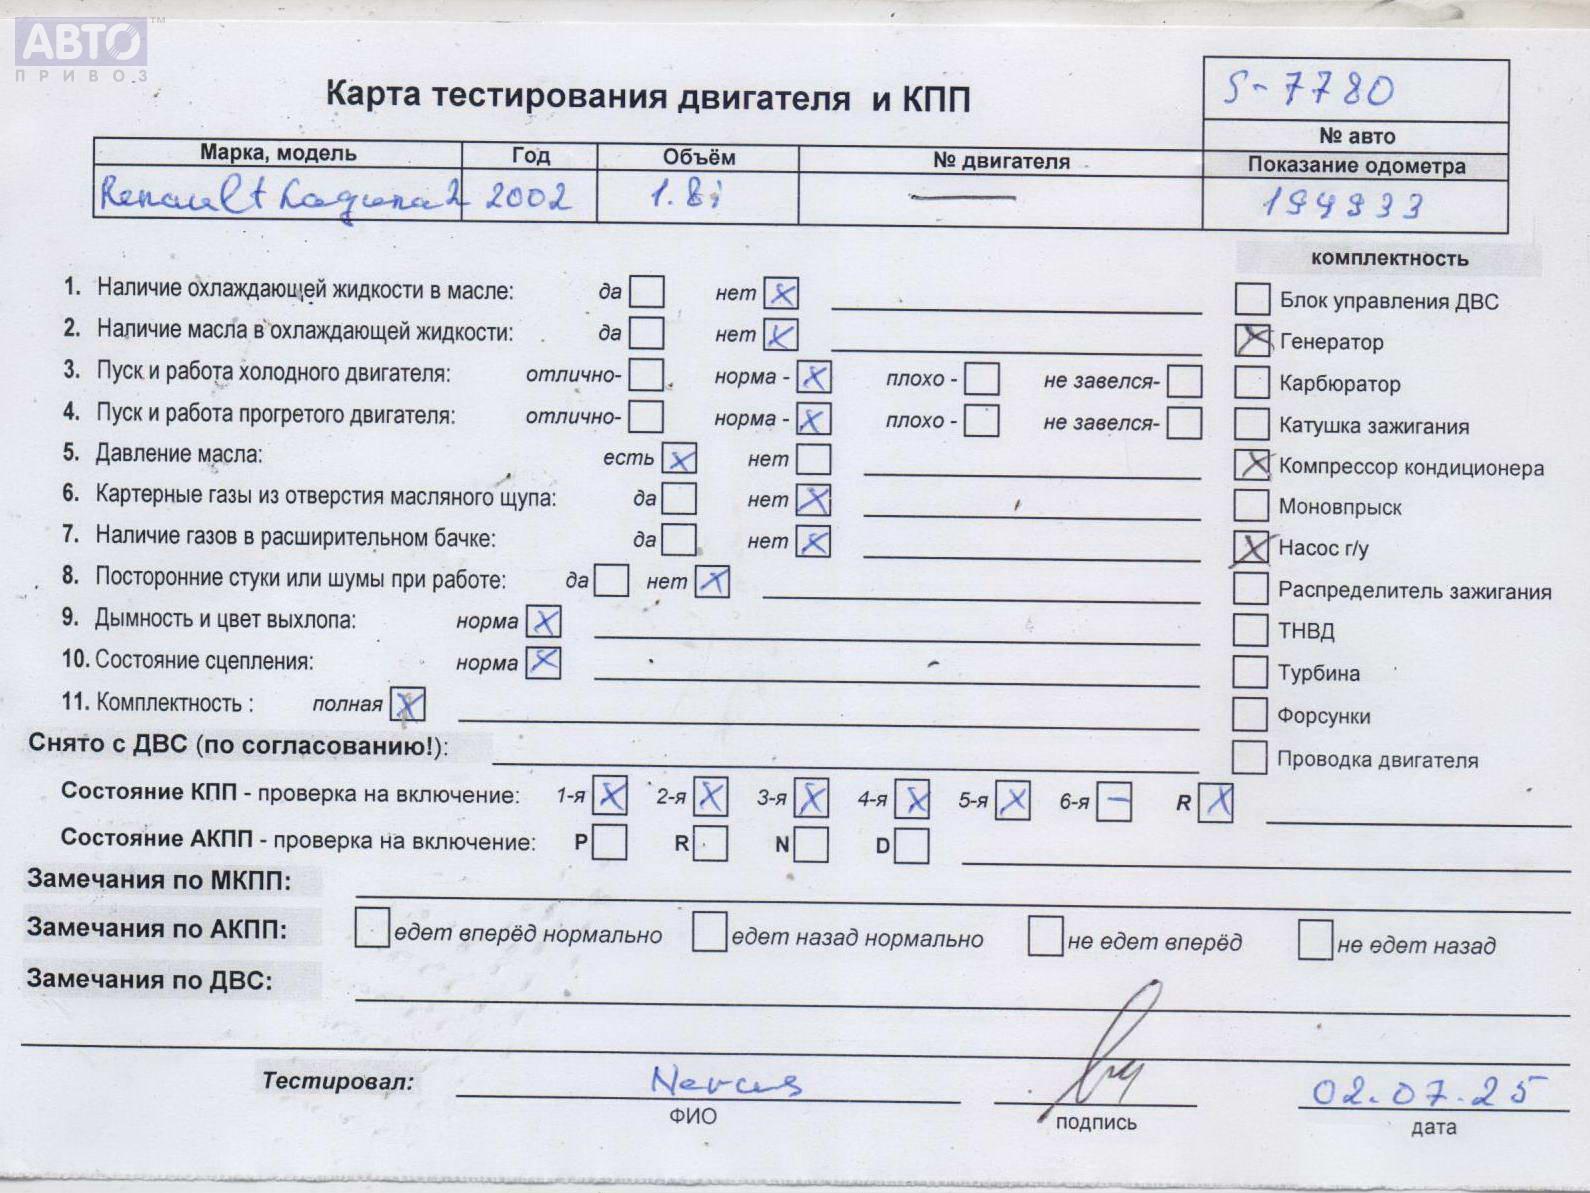 АВТО™
ПРИВОЗ
Карта тестирования двигателя и КПП
S-7780
№ авто
Марка, модель Год Объём № двигателя Показание одометра
Renault Laguna 2 2002 1.8i — 194933
комплектность
1. Наличие охлаждающей жидкости в масле: да нет X
Блок управления ДВС
2. Наличие масла в охлаждающей жидкости: да нет X
X Генератор
3. Пуск и работа холодного двигателя: отлично- норма - X плохо - не завелся-
Карбюратор
4. Пуск и работа прогретого двигателя: отлично- норма - X плохо - не завелся-
Катушка зажигания
5. Давление масла: есть X нет
X Компрессор кондиционера
6. Картерные газы из отверстия масляного щупа: да нет X
Моновпрыск
7. Наличие газов в расширительном бачке: да нет X
X Насос г/у
8. Посторонние стуки или шумы при работе: да нет X
Распределитель зажигания
9. Дымность и цвет выхлопа: норма X
ТНВД
10. Состояние сцепления: норма X
Турбина
11. Комплектность : полная X
Форсунки
Снято с ДВС (по согласованию!):
Проводка двигателя
Состояние КПП - проверка на включение: 1-я X 2-я X 3-я X 4-я X 5-я X 6-я — R X
Состояние АКПП - проверка на включение: P R N D
Замечания по МКПП:
Замечания по АКПП: едет вперёд нормально едет назад нормально не едет вперёд не едет назад
Замечания по ДВС:
Тестировал: 02.07.25
ФИО подпись дата